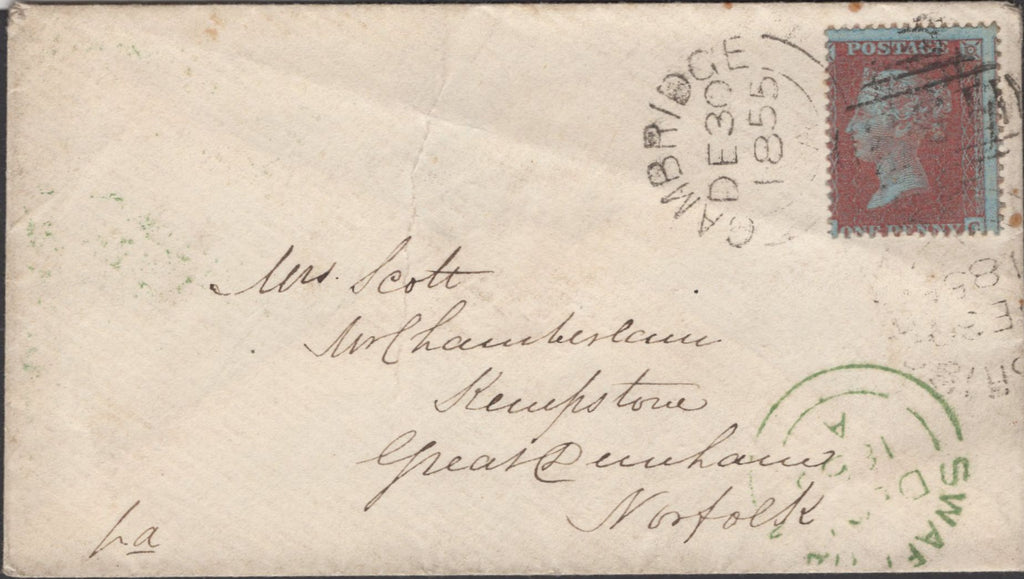 CAMBRIDGE
DE 30
1855
POSTAGE
ONE PENNY
Mrs. Scott
Mr Chamberlain
Kempstone
Great Dunham
Norfolk
SWAF